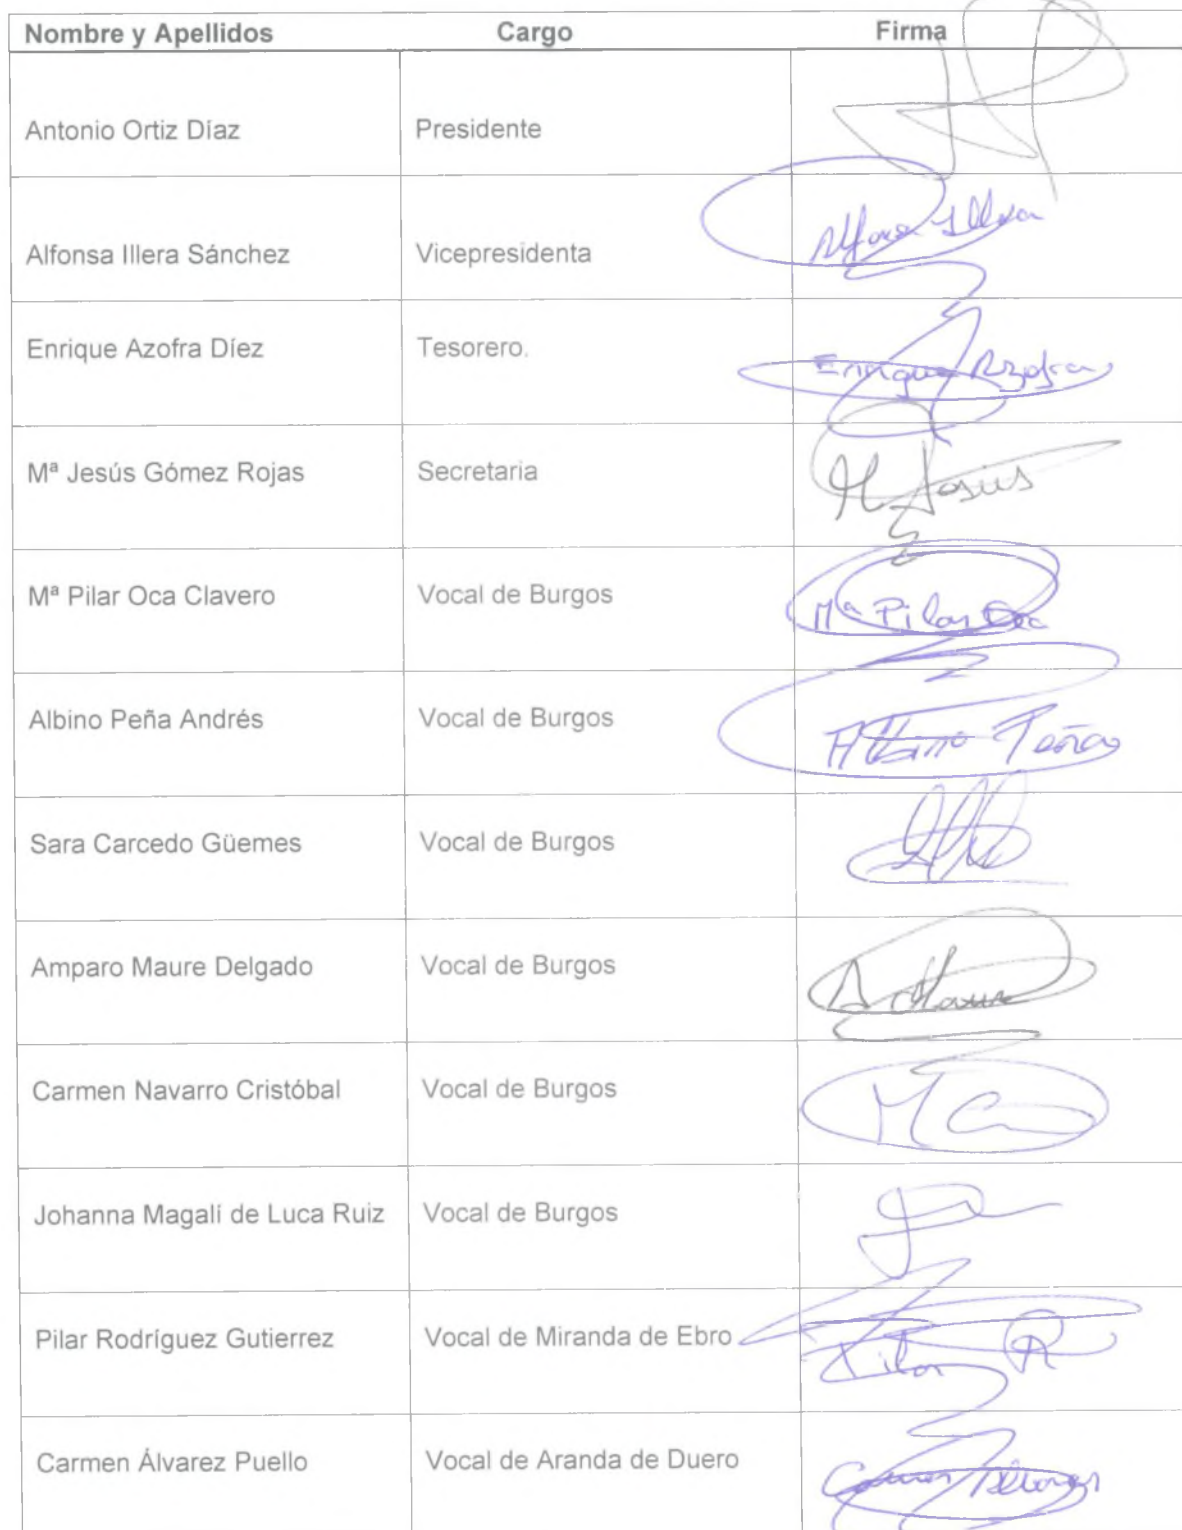 Nombre y Apellidos Cargo Firma
Antonio Ortiz Díaz Presidente
Alfonsa Illera Sánchez Vicepresidenta Alfonsa Illera
Enrique Azofra Díez Tesorero. Enrique Azofra
Mª Jesús Gómez Rojas Secretaria M Jesús
Mª Pilar Oca Clavero Vocal de Burgos Mª Pilar Oca
Albino Peña Andrés Vocal de Burgos Albino Peña
Sara Carcedo Güemes Vocal de Burgos
Amparo Maure Delgado Vocal de Burgos A Maure
Carmen Navarro Cristóbal Vocal de Burgos
Johanna Magalí de Luca Ruiz Vocal de Burgos
Pilar Rodríguez Gutierrez Vocal de Miranda de Ebro Pilar R
Carmen Álvarez Puello Vocal de Aranda de Duero Carmen Álvarez